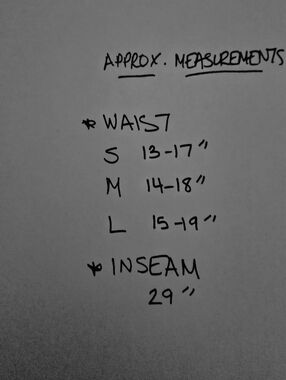 APPROX. MEASUREMENTS
* WAIST
S 13-17"
M 14-18"
L 15-19"
* INSEAM
29"